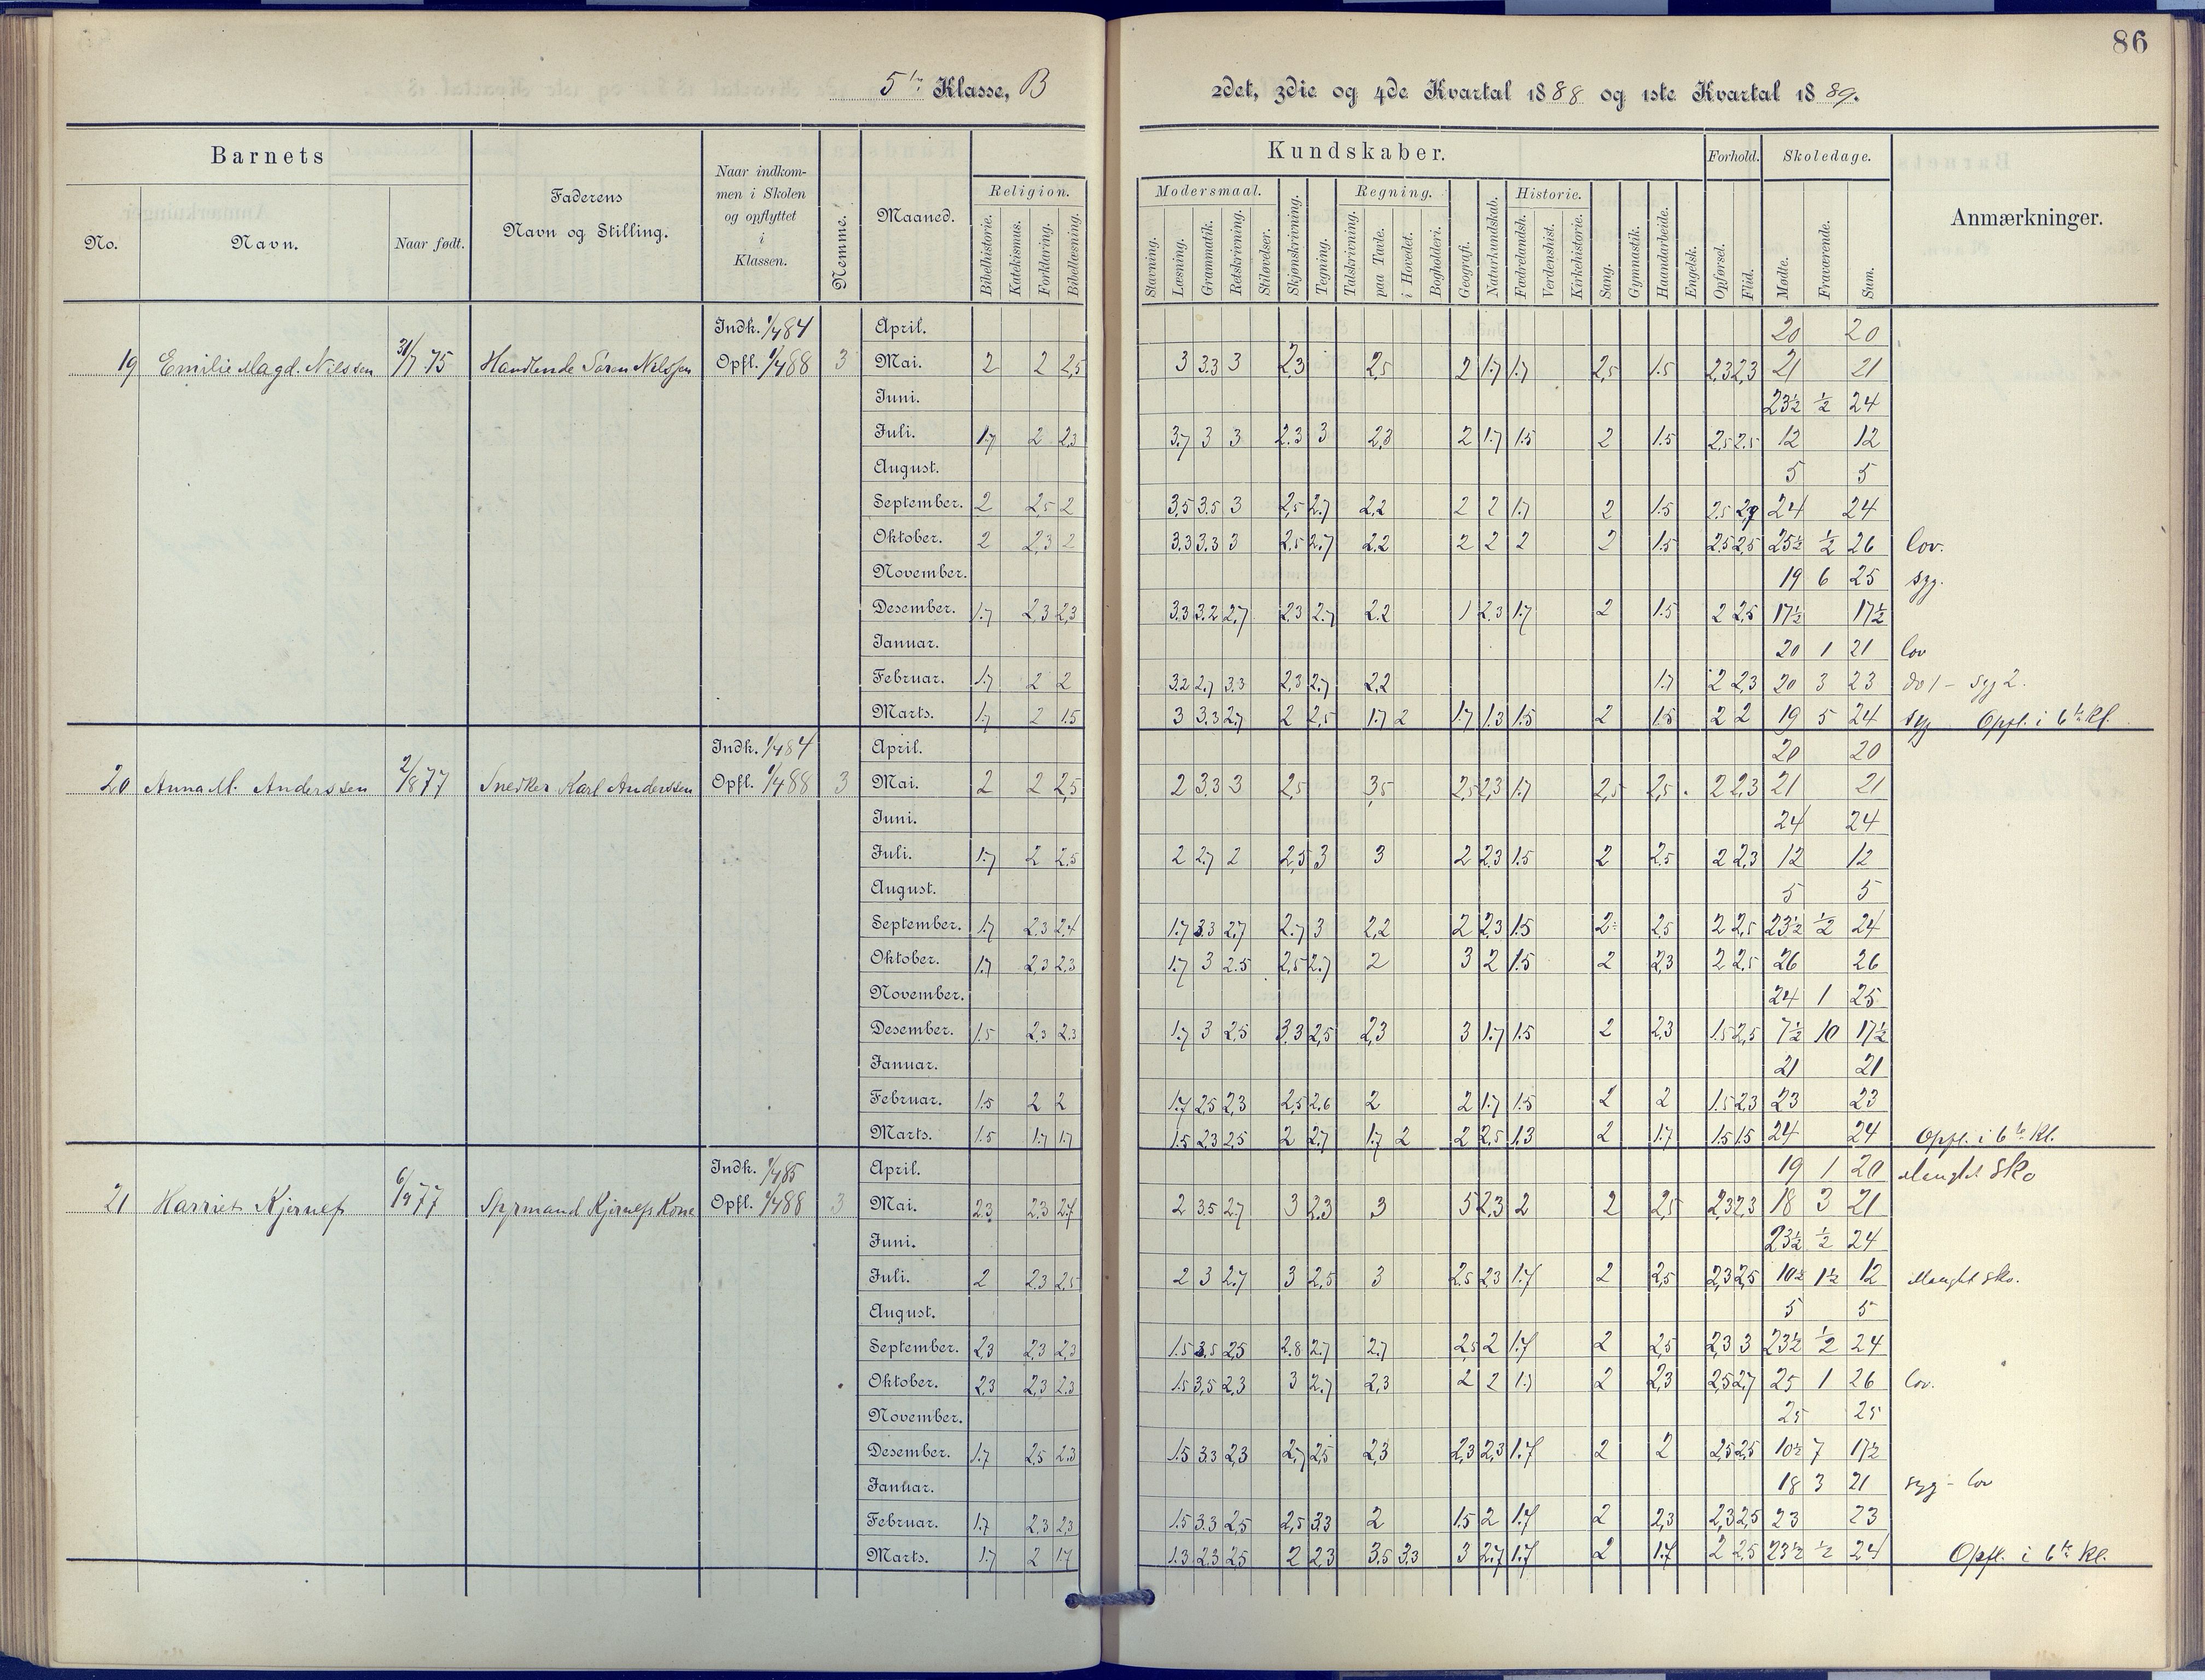 86
5te Klasse, B
2det, 3die og 4de Kvartal 1888 og 1ste Kvartal 1889.
Barnets
No.
Navn.
Naar født.
Faderens
Navn og Stilling.
Naar indkom-
men i Skolen
og opflyttet
i
Klassen.
Nemme.
Maaned.
Religion.
Bibelhistorie.
Katekismus.
Forklaring.
Bibellæsning.
Kundskaber.
Modersmaal.
Stavning.
Læsning.
Grammatik.
Retskrivning.
Stiløvelser.
Skjønskrivning.
Tegning.
Regning.
Talskrivning.
paa Tavle.
i Hovedet.
Bogholderi.
Geografi.
Naturkundskab.
Historie.
Fædrelandsh.
Verdenshist.
Kirkehistorie.
Sang.
Gymnastik.
Haandarbeide.
Engelsk.
Forhold.
Opførsel.
Flid.
Skoledage.
Mødte.
Fraværende.
Sum.
Anmærkninger.
19 Emilie Magd. Nilssen 31/7 75 Handlende Søren Nilssen Indk. 1/4 84 Opfl. 1/4 88 3
April. 20 20
Mai. 2 2 2,5 3 3.3 3 2,3 2,5 2 1.7 1.7 2,5 1.5 2,3 2,3 21 21
Juni. 23½ ½ 24
Juli. 1.7 2 2,3 3.7 3 3 2.3 3 2,3 2 1.7 1.5 2 1.5 2,5 2.5 12 12
August. 5 5
September. 2 2,5 2 3,5 3.5 3 2,5 2.7 2,2 2 2 1.7 2 1.5 2.5 2,7 24 24
Oktober. 2 2,3 2 3.3 3.3 3 2,5 2.7 2.2 2 2 2 2 1.5 2.5 2,5 25½ ½ 26 lov.
November. 19 6 25 syg.
Desember. 1.7 2,3 2,3 3.3 3.2 2,7 2,3 2.7 2.2 1 2.3 1.7 2 1.5 2 2,5 17½ 17½
Januar. 20 1 21 lov
Februar. 1.7 2 2 3.2 2.7 3.3 2,3 2.7 2,2 1.7 2 2,3 20 3 23 do 1 - syg 2.
Marts. 1.7 2 1.5 3 3.3 2.7 2 2,5 1.7 2 1.7 1.3 1.5 2 1.5 2 2 19 5 24 syg Opfl. i 6te Kl.
20 Anna M. Anderssen 2/8 77 Snedker Karl Anderssen Indk. 1/4 84 Opfl. 1/4 88 3
April. 20 20
Mai. 2 2 2,5 2 3,3 3 2,5 3,5 2,5 2,3 1.7 2,5 2,5 2 2,3 21 21
Juni. 24 24
Juli. 1.7 2 2,5 2 2.7 2 2,5 3 3 2 2.3 1.5 2 2,5 2 2,3 12 12
August. 5 5
September. 1.7 2.3 2,4 1.7 3.3 2,7 2.7 3 2,2 2 2,3 1.5 2 2,5 2 2,5 23½ ½ 24
Oktober. 1.7 2,3 2,3 1.7 3 2.5 2,5 2.7 2 3 2 1.5 2 2,3 2 2,5 26 26
November. 24 1 25
Desember. 1.5 2,3 2.3 1.7 3 2,5 3.3 2,5 2,3 3 1.7 1.5 2 2,3 1.5 2,5 7½ 10 17½
Januar. 21 21
Februar. 1.5 2 2 1.7 2,5 2,3 2,5 2.6 2 2 1.7 1.5 2 2 1.5 2,3 23 23
Marts. 1.5 1.7 1.7 1.5 2.3 2.5 2 2.7 1.7 2 2 2,5 1.3 2 1.7 1.5 1.5 24 24 Opfl. i 6te Kl.
21 Harriet Kjørulf 6/9 77 Styrmand Kjørulfs Kone Indk. 1/4 85 Opfl. 1/4 88 3
April. 19 1 20 Manglet Sko
Mai. 2.3 2.3 2.7 2 3.5 2.7 3 2.3 3 5 2,3 2 2 2,5 2,3 2,3 18 3 21
Juni. 23½ ½ 24
Juli. 2 2.3 2.5 2 3 2.7 3 2,5 3 2.5 2.3 1.7 2 2,5 2,3 2,5 10½ 1½ 12 Manglet Sko.
August. 5 5
September. 2,3 2,3 2,3 1.5 3.5 2.5 2.8 2.7 2.7 2,5 2 1.7 2 2,5 2,3 3 23½ ½ 24
Oktober. 2,3 2,3 2.3 1.5 3,5 2,3 3 2.7 2,3 2 2 1.7 2 2,3 2,5 2,7 25 1 26 lov.
November. 25 25
Desember. 1.7 2,5 2.3 1.5 3.3 2,3 2,7 2,5 2,3 2,3 2,3 1.7 2 2 2,5 2,5 10½ 7 17½
Januar. 18 3 21 syg - lov
Februar. 1.7 2,3 2,3 1.5 3.3 2,5 2,5 3.3 2 1.5 2 1.7 2 2,3 2,3 2,5 23 23
Marts. 1.7 2 1.7 1.3 2.3 2.5 2 2,3 3,5 3,3 3 2.7 1.7 2 1.7 2 2,5 23½ ½ 24 Opfl. i 6te Kl.